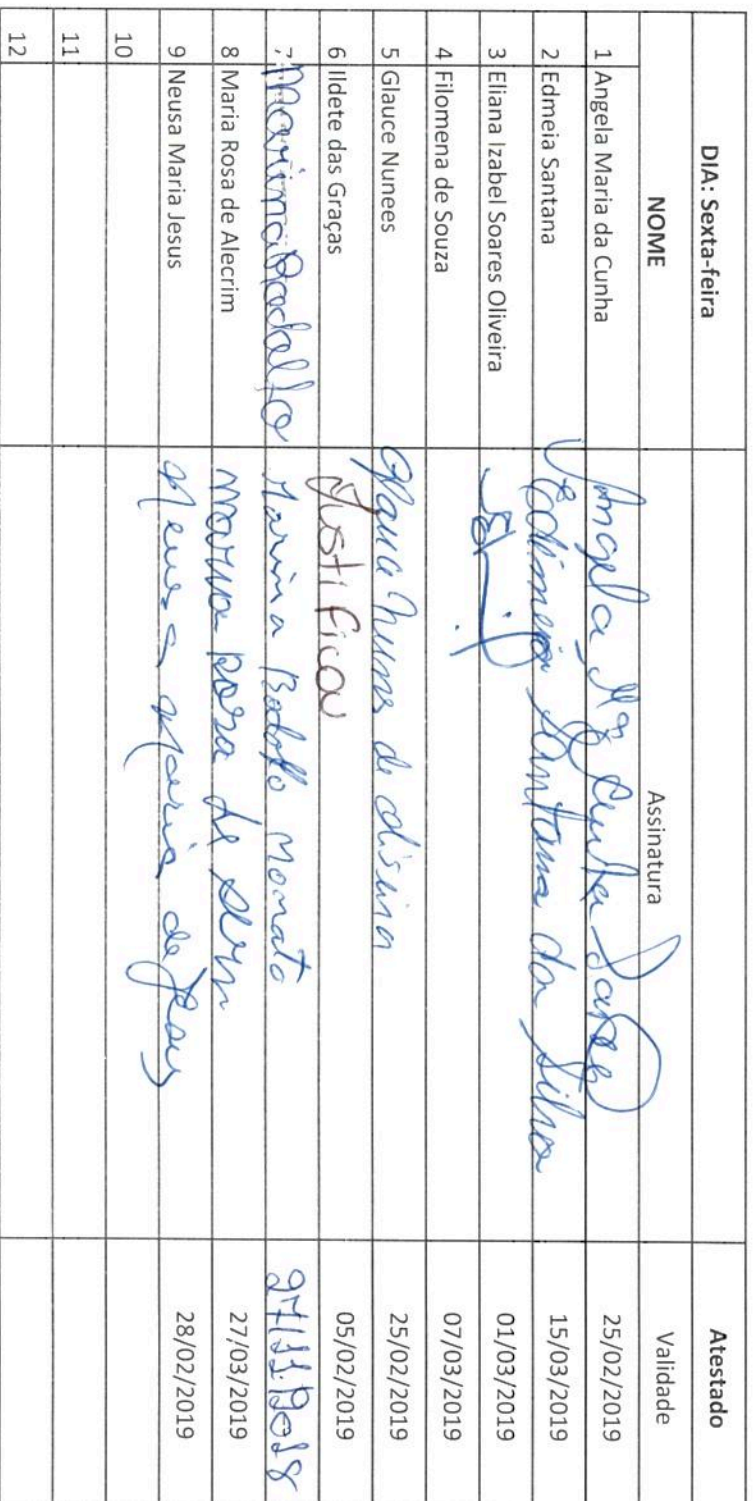 DIA: Sexta-feira Atestado
NOME Assinatura Validade
1 Angela Maria da Cunha Angela Mª Cunha 25/02/2019
2 Edmeia Santana Edimeia Santana da Silva 15/03/2019
3 Eliana Izabel Soares Oliveira 01/03/2019
4 Filomena de Souza 07/03/2019
5 Glauce Nunees Glauce Nunes de 25/02/2019
6 Ildete das Graças Justificou 05/02/2019
7 Marina Rodolfo Marina Rodolfo 27/11/2018
8 Maria Rosa de Alecrim Maria Rosa de 27/03/2019
9 Neusa Maria Jesus Neusa Maria de Jesus 28/02/2019
10
11
12